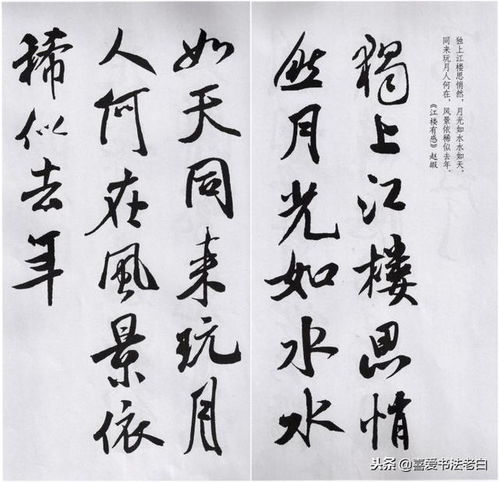 独上江楼思悄然，月光如水水如天。
同来玩月人何在，风景依稀似去年。
《江楼有感》赵嘏
獨上江楼思悄
然月光如水水
如天同来玩月
人何在風景依
稀似去年
头条 @喜爱书法老白